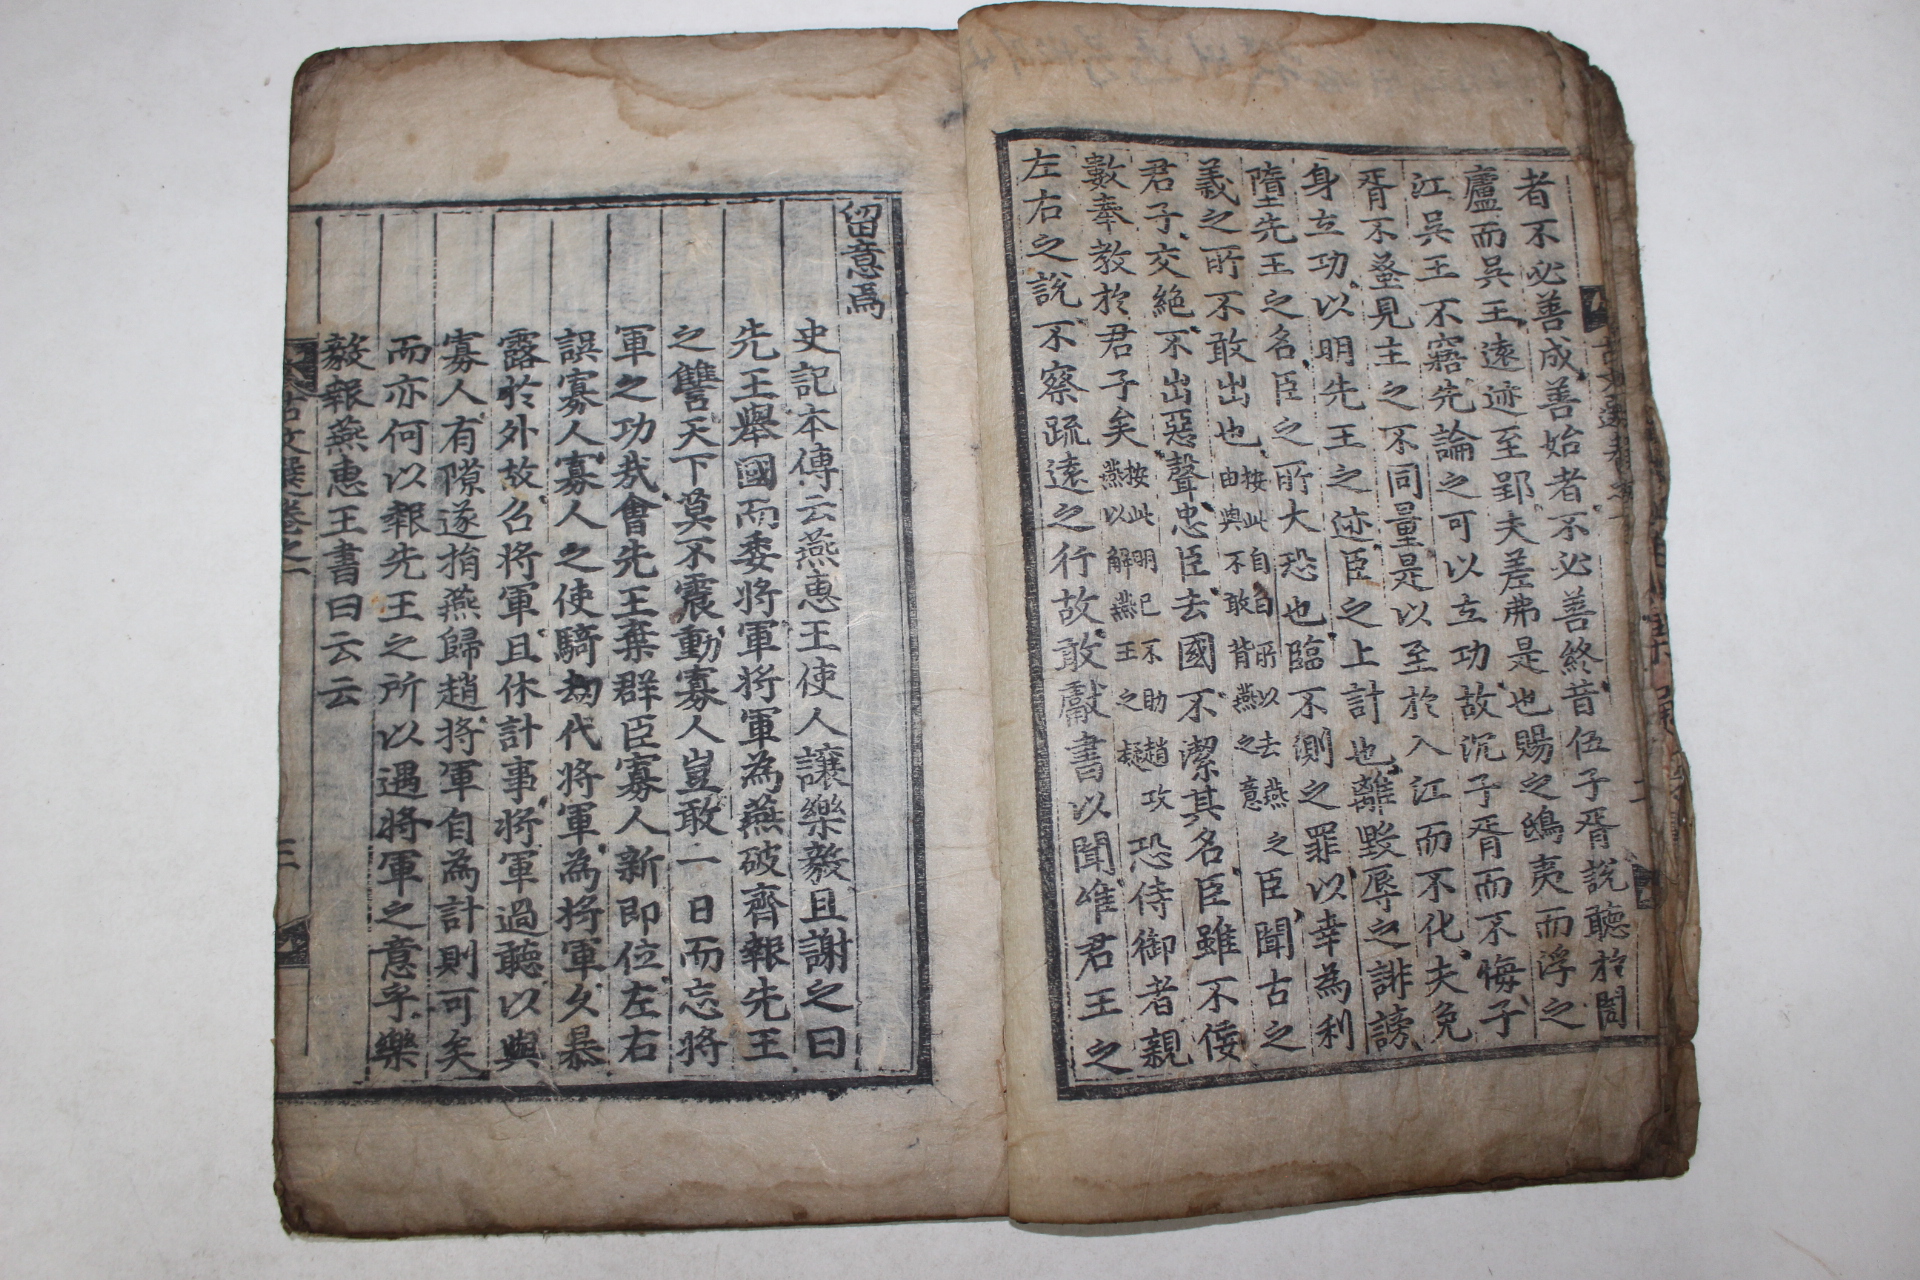 者不必善成善始者不必善終昔伍子胥說聽於闔
廬而吳王遠迹至郢夫差弗是也賜之鴟夷而浮之
江吳王不寤先論之可以立功故沉子胥而不悔子
胥不蚤見主之不同量是以至於入江而不化夫免
身立功以明先王之迹臣之上計也離毀辱之誹謗
墮先王之名臣之所大恐也臨不測之罪以幸為利
義之所不敢出也
按此自白所以去燕之意
由與不敢背燕之
臣聞古之
君子交絶不出惡聲忠臣去國不潔其名臣雖不佞
數奉教於君子矣
按此明己不助趙攻
燕以解燕王之疑
恐侍御者親
左右之說不察疏遠之行故敢獻書以聞唯君王之
留意焉
史記本傳云燕惠王使人讓樂毅且謝之曰
先王舉國而委將軍將軍為燕破齊報先王
之讐天下莫不震動寡人豈敢一日而忘將
軍之功哉會先王棄群臣寡人新即位左右
誤寡人寡人之使騎劫代將軍為將軍久暴
露於外故召將軍且休計事將軍過聽以與
寡人有隙遂捐燕歸趙將軍自為計則可矣
而亦何以報先王之所以遇將軍之意乎樂
毅報燕惠王書曰云云
古文選卷之一
三